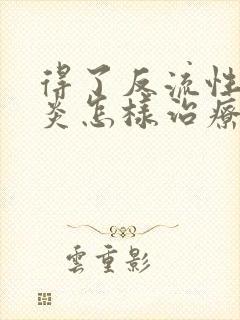 得了反流性
炎怎樣治療
雲重影